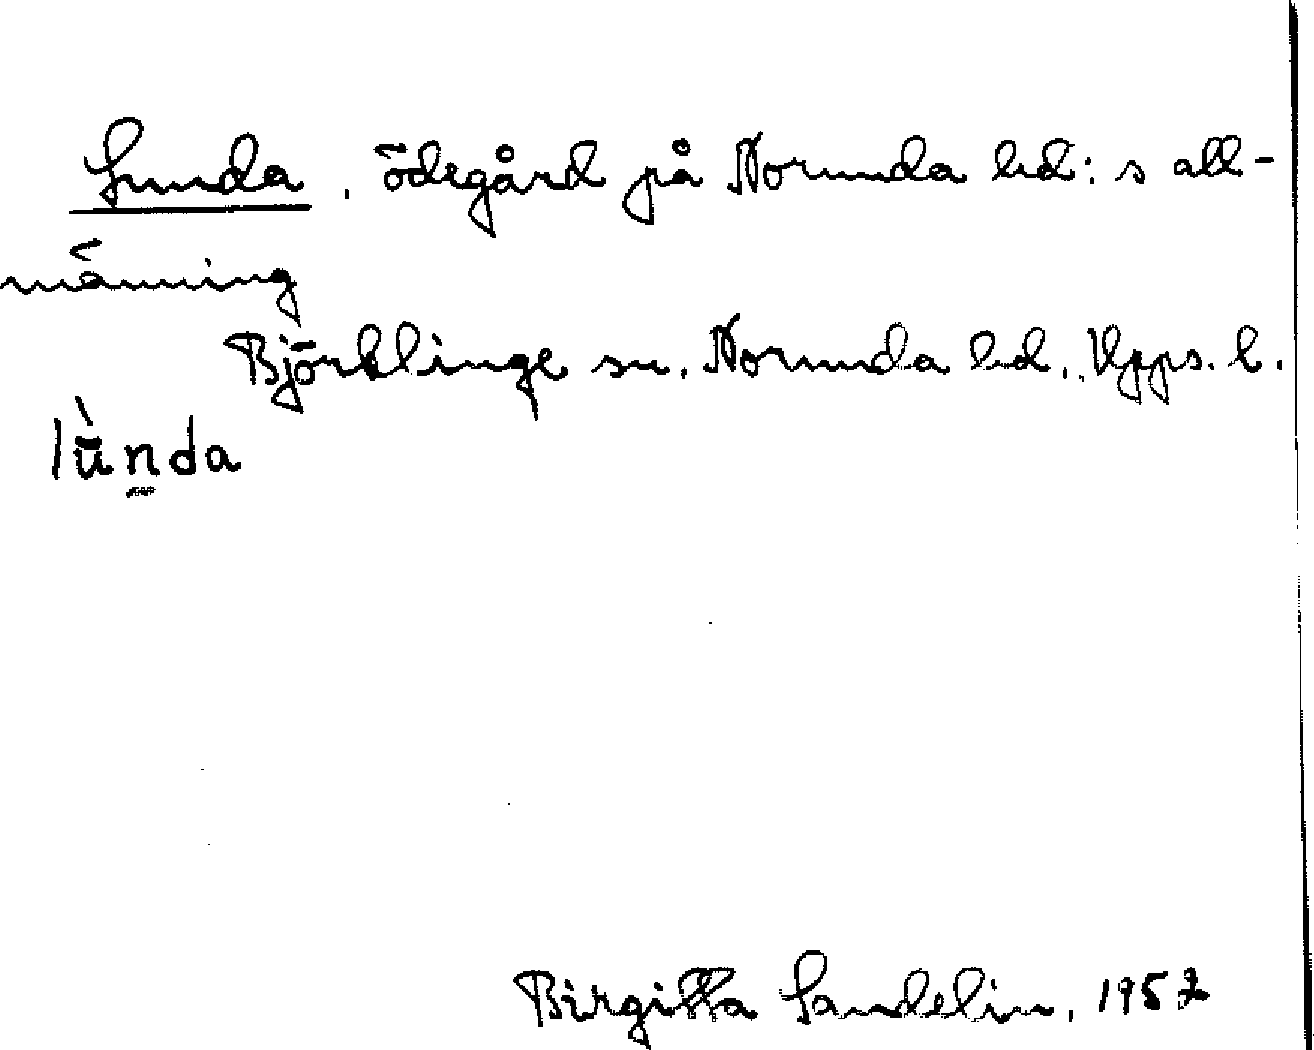 Lunda, ödegård på Norunda hd:s all-
männing
Björklinge sn, Norunda hd, Upps. l.
lùnda
Birgitta Sandelin, 1952